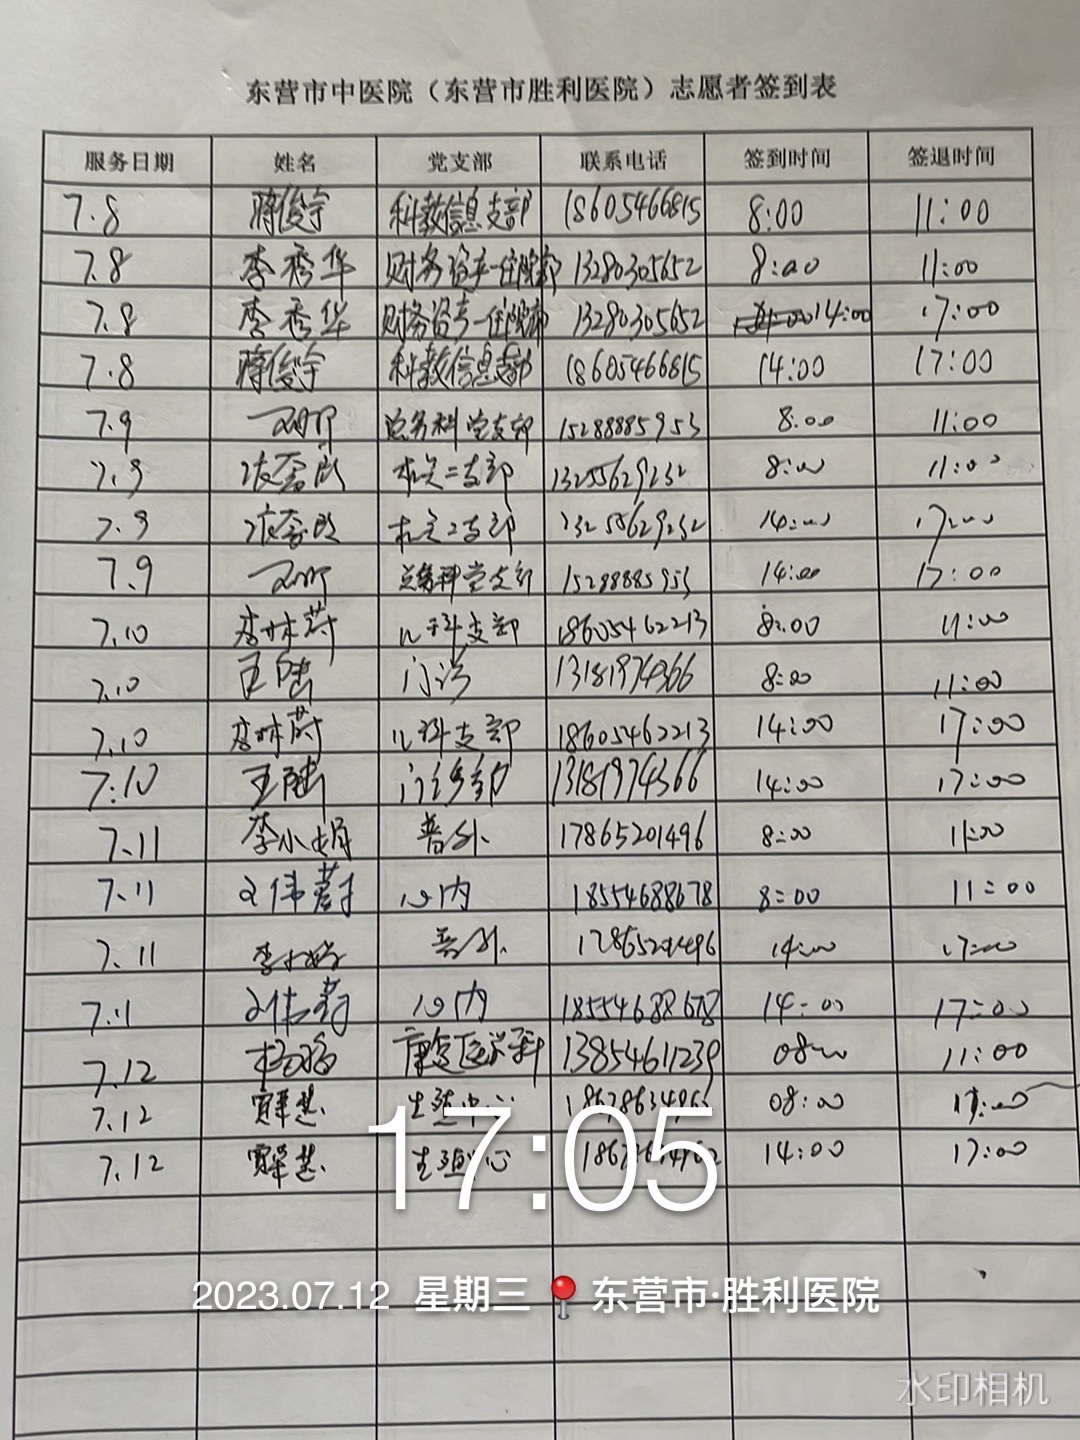 东营市中医院（东营市胜利医院）志愿者签到表
服务日期 姓名 党支部 联系电话 签到时间 签退时间
7.8 蒋俊宇 科教信息支部 18605466815 8:00 11:00
7.8 李秀华 财务资产一住院部 13280305652 8:00 11:00
7.8 李秀华 财务资产一住院部 13280305652 14:00 17:00
7.8 蒋俊宇 科教信息支部 18605466815 14:00 17:00
7.9 总务科党支部 15288885953 8:00 11:00
7.9 机关二支部 13255629232 8:00 11:00
7.9 机关二支部 13255629232 14:00 17:00
7.9 总务科党支部 15288885953 14:00 17:00
7.10 李林蔚 儿科支部 18605462213 8:00 11:00
7.10 王陆 门诊 13181974366 8:00 11:00
7.10 李林蔚 儿科支部 18605462213 14:00 17:00
7:10 王陆 门诊支部 13181974366 14:00 17:00
7.11 李小娟 普外 17865201496 8:00 11:00
7.11 伟蔚 心内 18554688678 8:00 11:00
7.11 李小娟 普外 17865201496 14:00 17:00
7.11 伟蔚 心内 18554688678 14:00 17:00
7.12 杨 康复医学科 13854611239 08:00 11:00
7.12 慧 生殖中心 08:00 11:00
7.12 慧 生殖中心 14:00 17:00
17:05
2023.07.12 星期三 东营市·胜利医院
水印相机